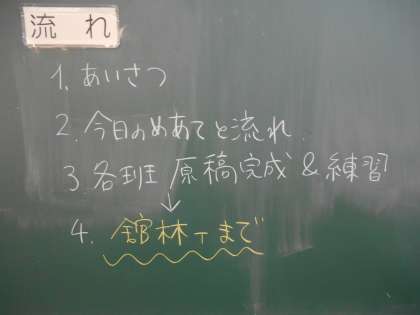 流れ
1. あいさつ
2. 今日のめあてと流れ
3. 各班 原稿完成 & 練習
↓
4. 舘林Tまで